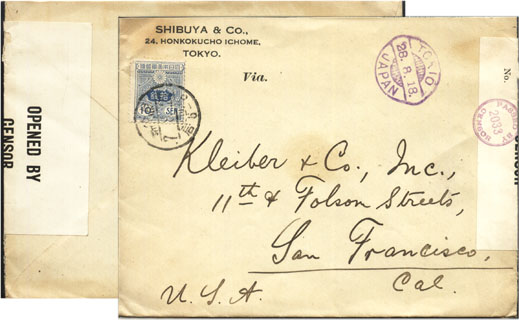 SHIBUYA & Co.,
24, HONKOKUCHO ICHOME,
TOKYO.
Via.
TOKIO
28. 8. 18.
JAPAN
SEN
Kleiber & Co., Inc.,
11th & Folson Streets,
San Francisco,
Cal.
U.S.A.
OPENED BY
CENSOR
No.
PASSED BY
2033
CENSOR